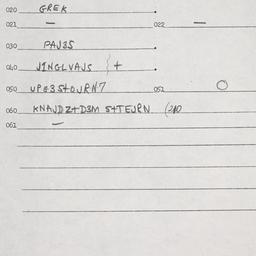 020 GREK
021 — 022 —
030 PAJ35
040 JINGLVAJS } +
050 UPE3S+OJRN7 051 O
060 KNAJDZ+D3M S+TEJRN (210
061 —